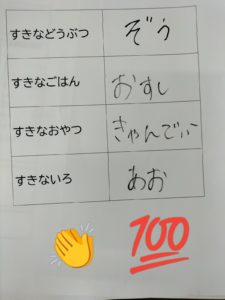 すきなどうぶつ ぞう
すきなごはん おすし
すきなおやつ きゃんでぃ
すきないろ あお
100